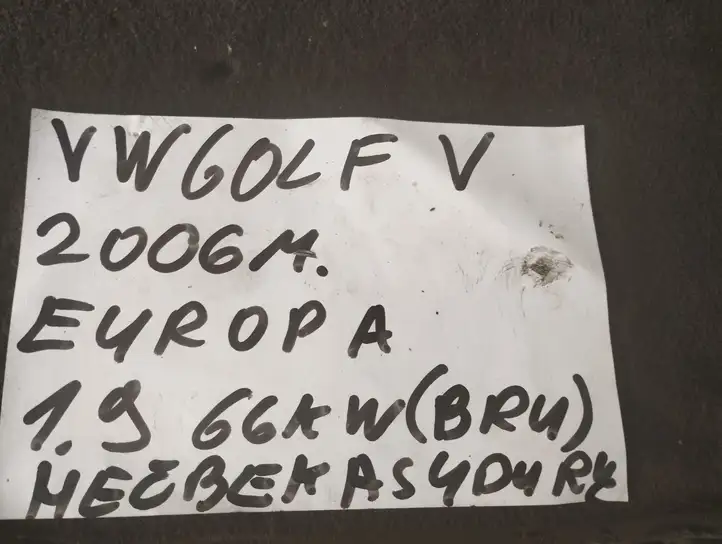 VW GOLF V
2006 M.
EUROPA
1.9 66KW (BRU)
HEČBEKAS 4DURŲ